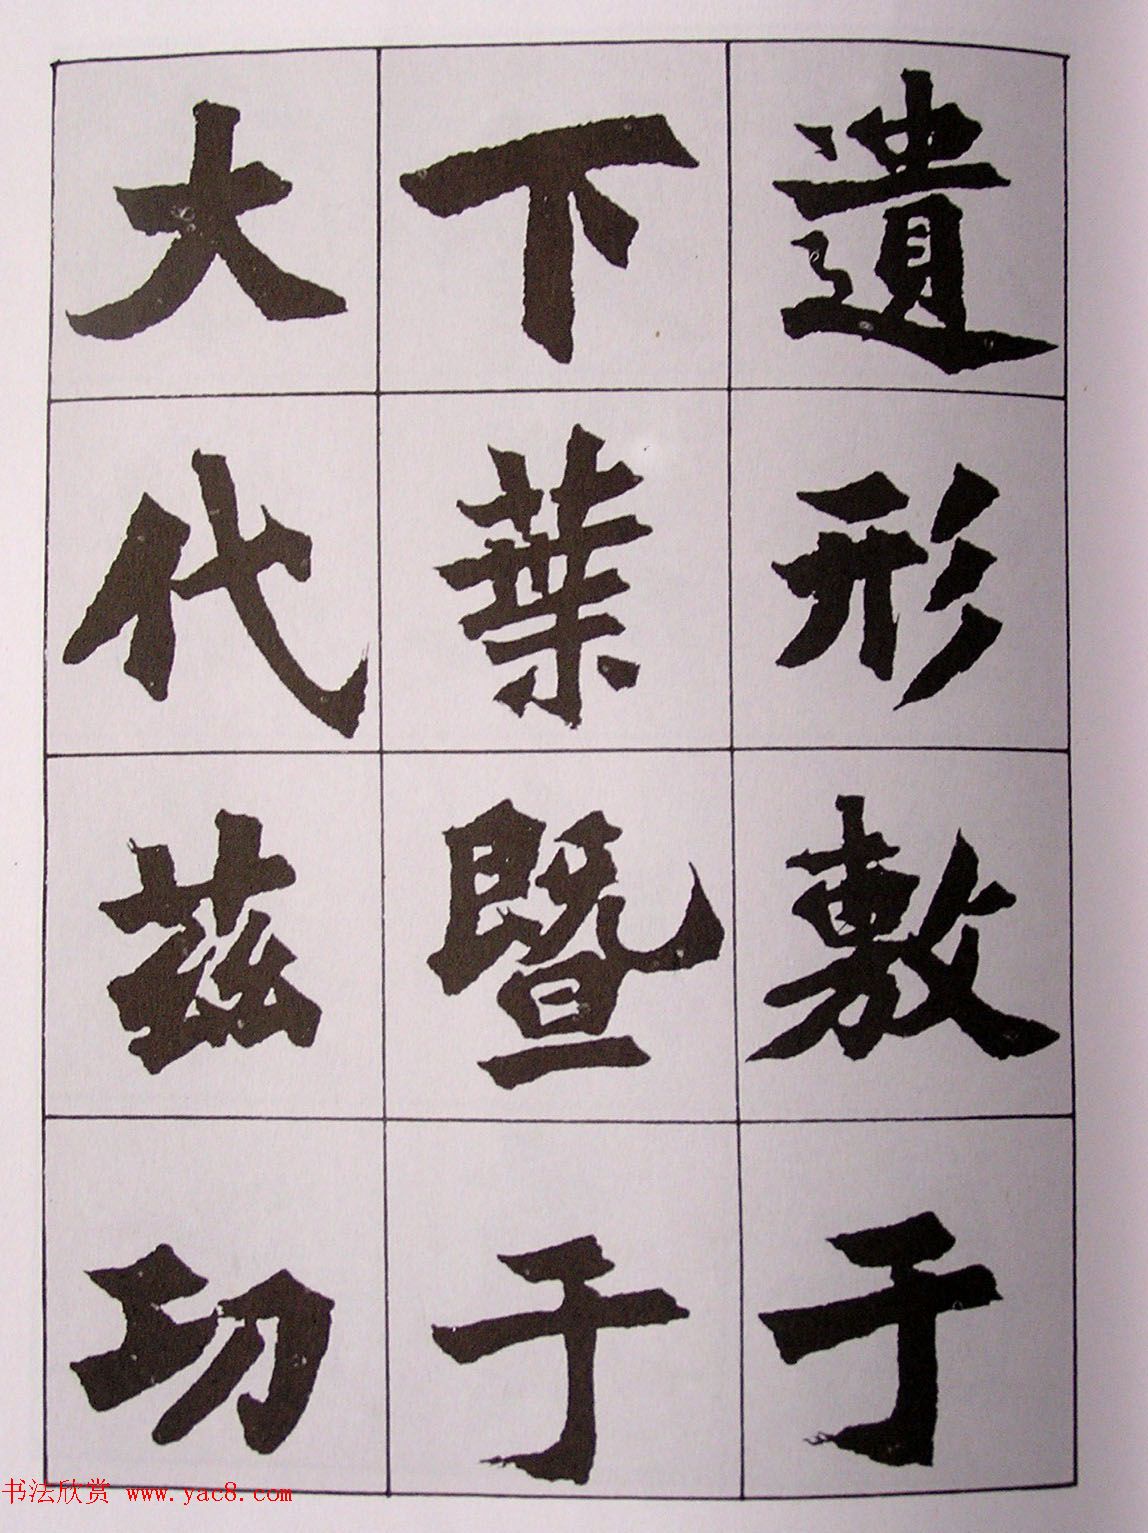 遺形敷于
下葉暨于
大代茲功
书法欣赏 www.yac8.com